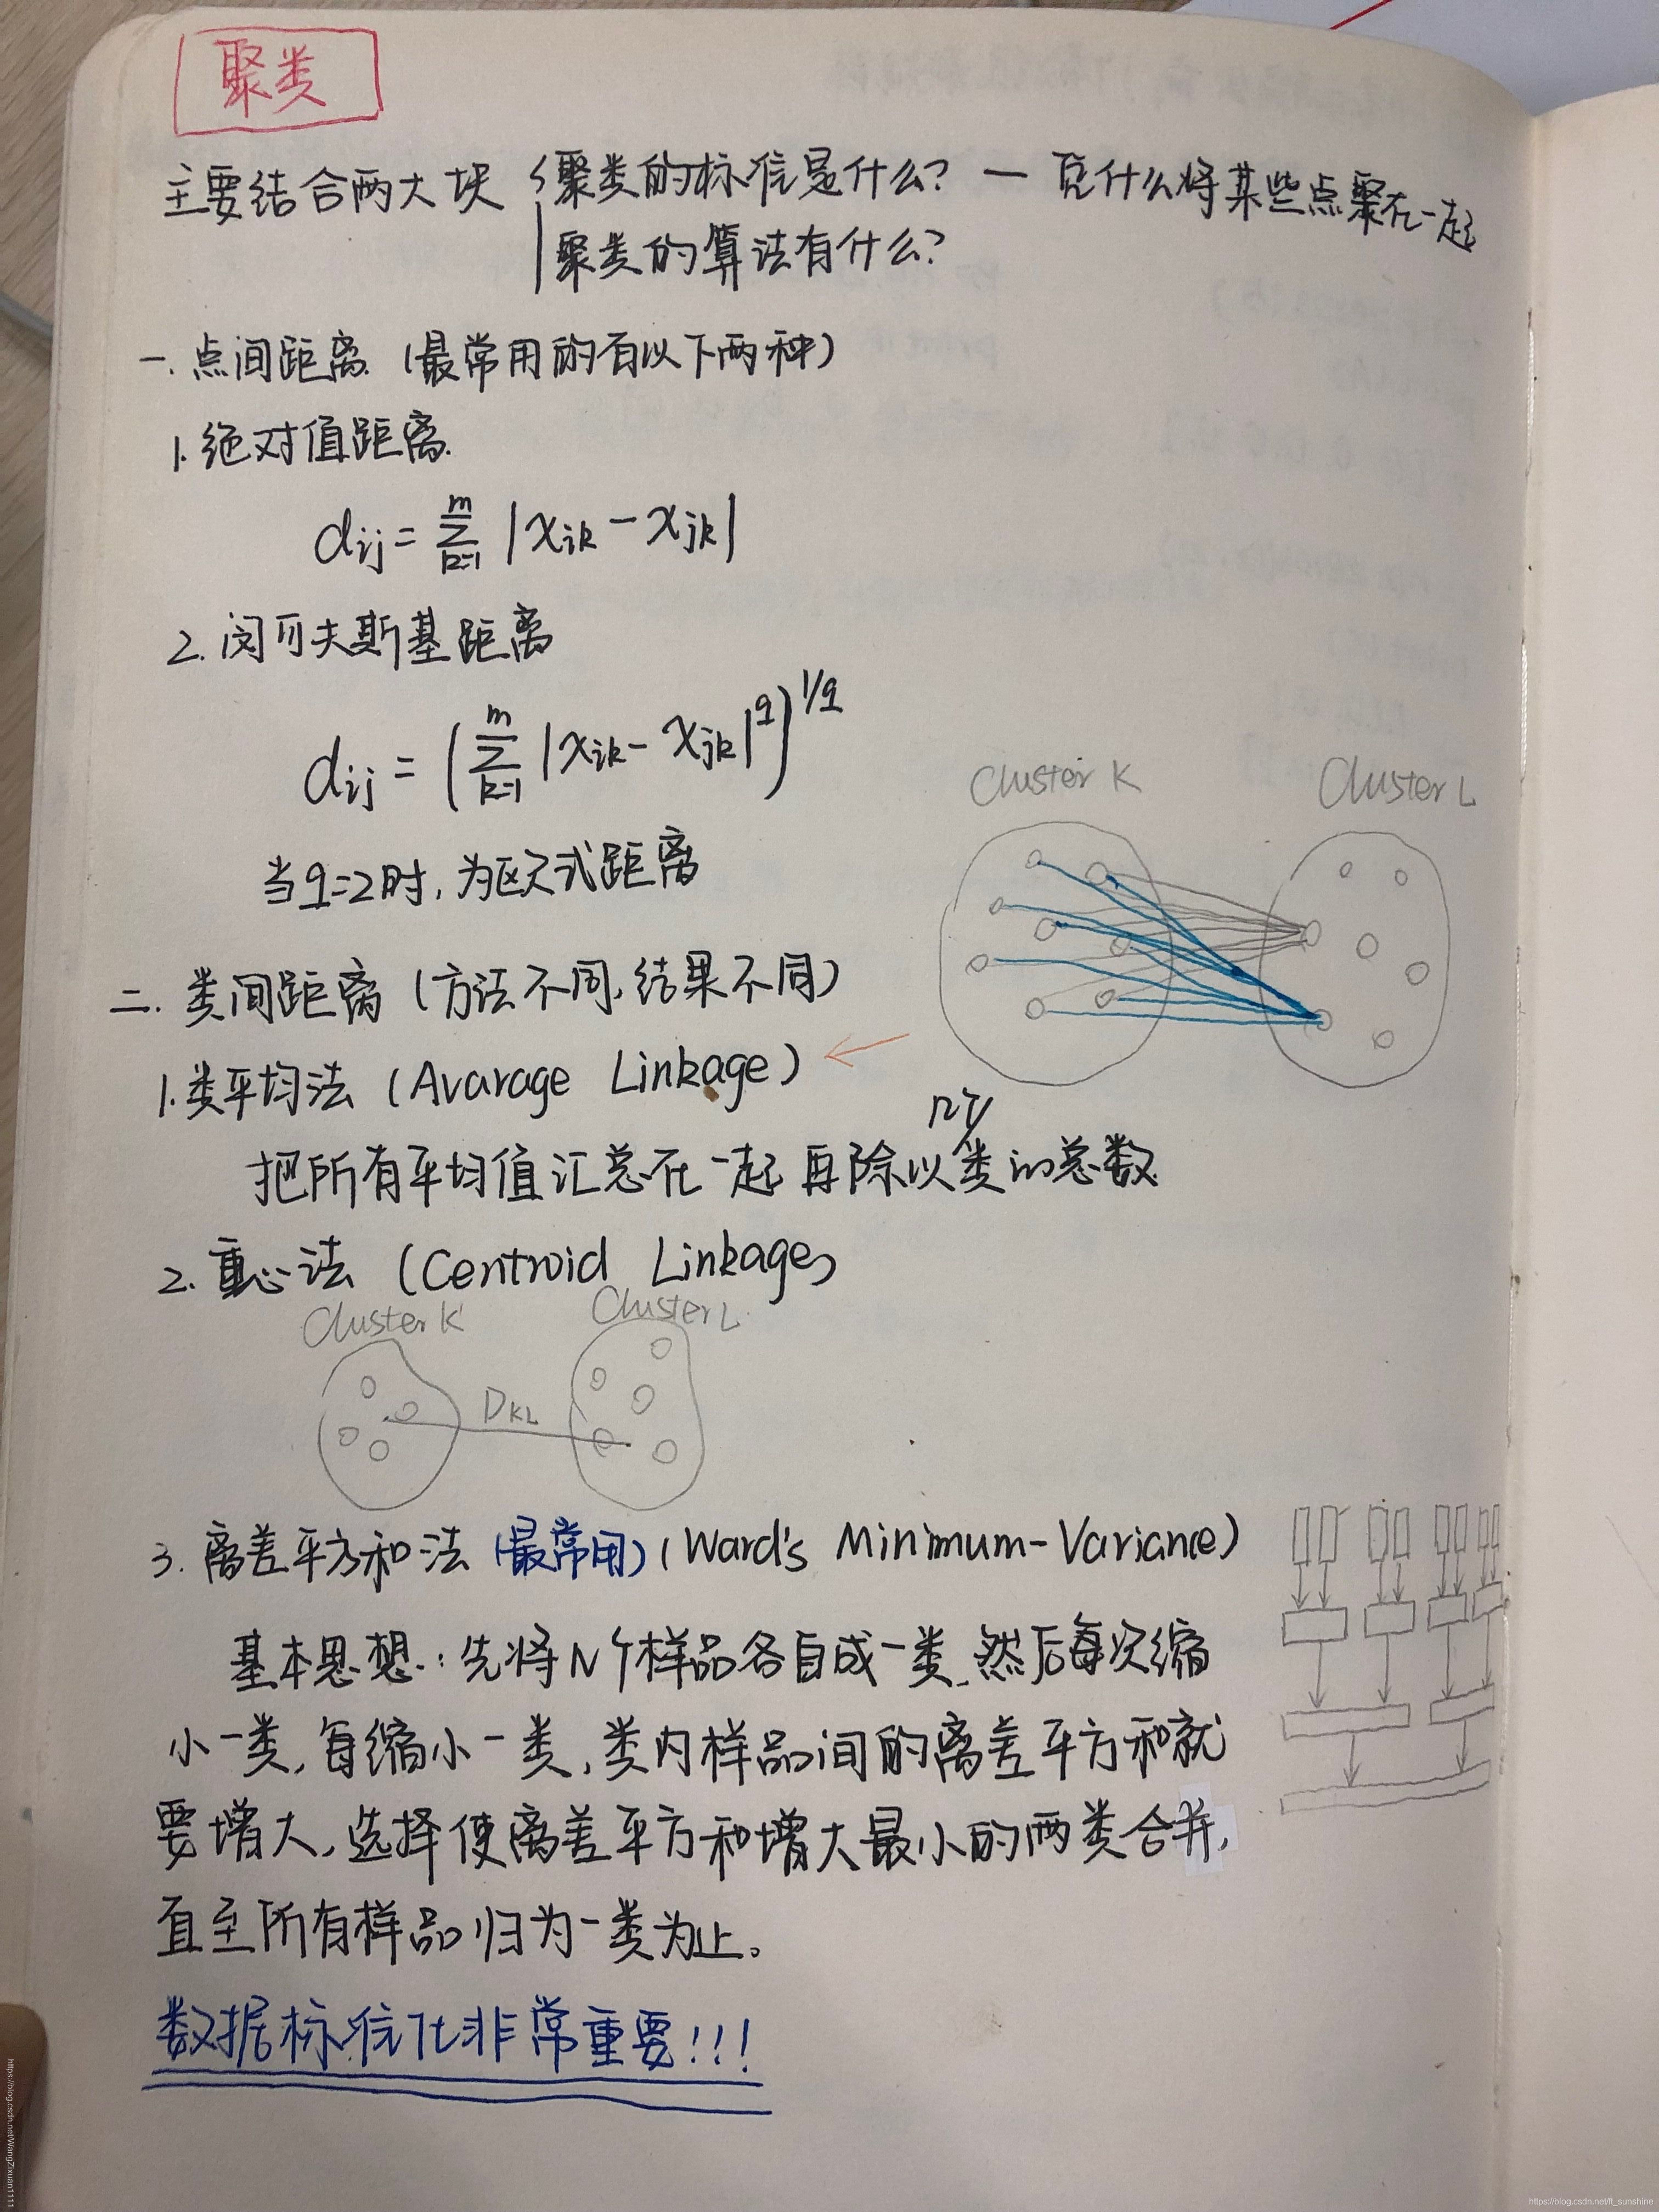 聚类
主要结合两大块 聚类的标准是什么? — 凭什么将某些点聚在一起
聚类的算法有什么?
一. 点间距离 (最常用的有以下两种)
1. 绝对值距离.
dij = m∑k=1 |xik - xjk|
2. 闵可夫斯基距离
dij = (m∑k=1 |xik - xjk|^q)^1/q
当q=2时, 为欧式距离
Cluster K Cluster L
二. 类间距离 (方法不同, 结果不同)
1. 类平均法 (Avarage Linkage)
把所有平均值汇总在一起 再除以类的总数
2. 重心法 (Centroid Linkage)
Cluster K Cluster L
DKL
3. 离差平方和法 (最常用) (Ward's Minimum-Variance)
基本思想: 先将N个样品各自成一类, 然后每次缩
小一类, 每缩小一类, 类内样品间的离差平方和就
要增大, 选择使离差平方和增大最小的两类合并,
直至所有样品归为一类为止。
数据标准化非常重要!!!
https://blog.csdn.net/WangZixuan1111
https://blog.csdn.net/ft_sunshine